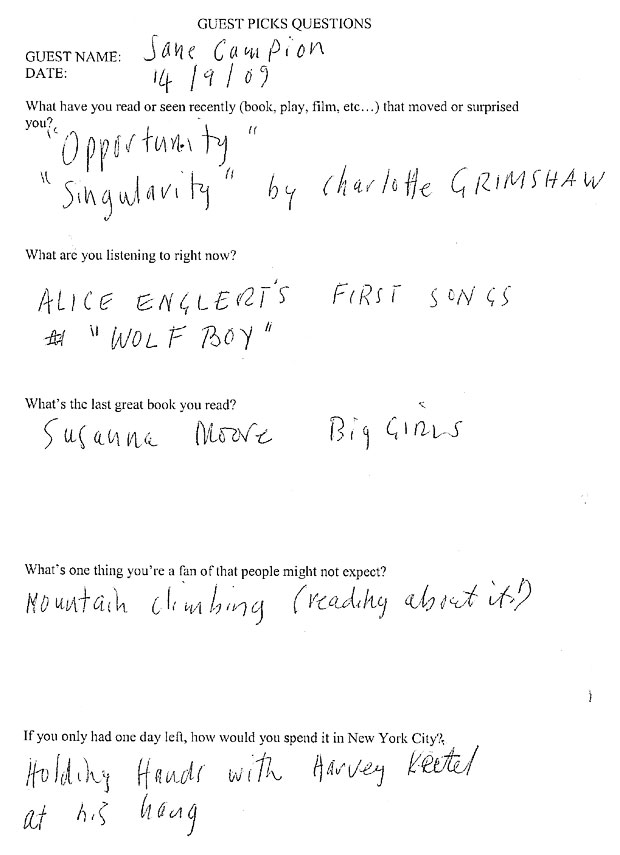 GUEST PICKS QUESTIONS
GUEST NAME: Jane Campion
DATE: 14/9/09
What have you read or seen recently (book, play, film, etc...) that moved or surprised
you?
"Opportunity"
"Singularity" by Charlotte GRIMSHAW
What are you listening to right now?
ALICE ENGLERT'S FIRST SONGS
"WOLF BOY"
What's the last great book you read?
Susanna Moore Big GIRLS
What's one thing you're a fan of that people might not expect?
Mountain climbing (reading about it!)
If you only had one day left, how would you spend it in New York City?
Holding Hands with Harvey Keitel
at his hang